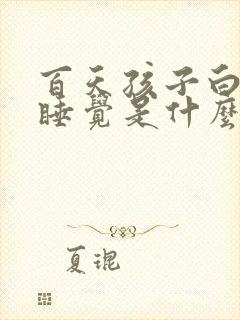 百天孩子白
睡覺是什麼
夏琨